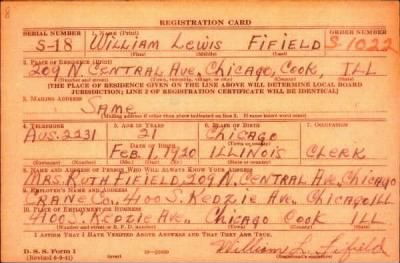 8
REGISTRATION CARD
SERIAL NUMBER 1. NAME (Print) ORDER NUMBER
S-18 WILLIAM LEWIS FIFIELD S-1022
(First) (Middle) (Last)
2. PLACE OF RESIDENCE (Print)
209 N. CENTRAL AVE. CHICAGO, COOK, ILL
(Number and street) (Town, township, village, or city) (County) (State)
[THE PLACE OF RESIDENCE GIVEN ON THE LINE ABOVE WILL DETERMINE LOCAL BOARD
JURISDICTION; LINE 2 OF REGISTRATION CERTIFICATE WILL BE IDENTICAL]
3. MAILING ADDRESS
SAME
[Mailing address if other than place indicated on line 2. If same, insert word same]
4. TELEPHONE 5. AGE IN YEARS 6. PLACE OF BIRTH 7. OCCUPATION
AUS. 2231 21 CHICAGO
DATE OF BIRTH
FEB. 1920 ILLINOIS CLERK
8. NAME AND ADDRESS OF PERSON WHO WILL ALWAYS KNOW YOUR ADDRESS
MRS. RUTH FIFIELD, 209 N. CENTRAL AVE., CHICAGO
9. EMPLOYER'S NAME AND ADDRESS
CRANE CO., 4100 S. KEDZIE AVE., CHICAGO ILL
10. PLACE OF EMPLOYMENT OR BUSINESS
4100 S. KEDZIE AVE. CHICAGO COOK ILL
(Number and street or R. F. D. number) (Town) (County) (State)
I AFFIRM THAT I HAVE VERIFIED ABOVE ANSWERS AND THAT THEY ARE TRUE.
D. S. S. Form 1
(Revised 6-9-41) (over) William L. Fifield